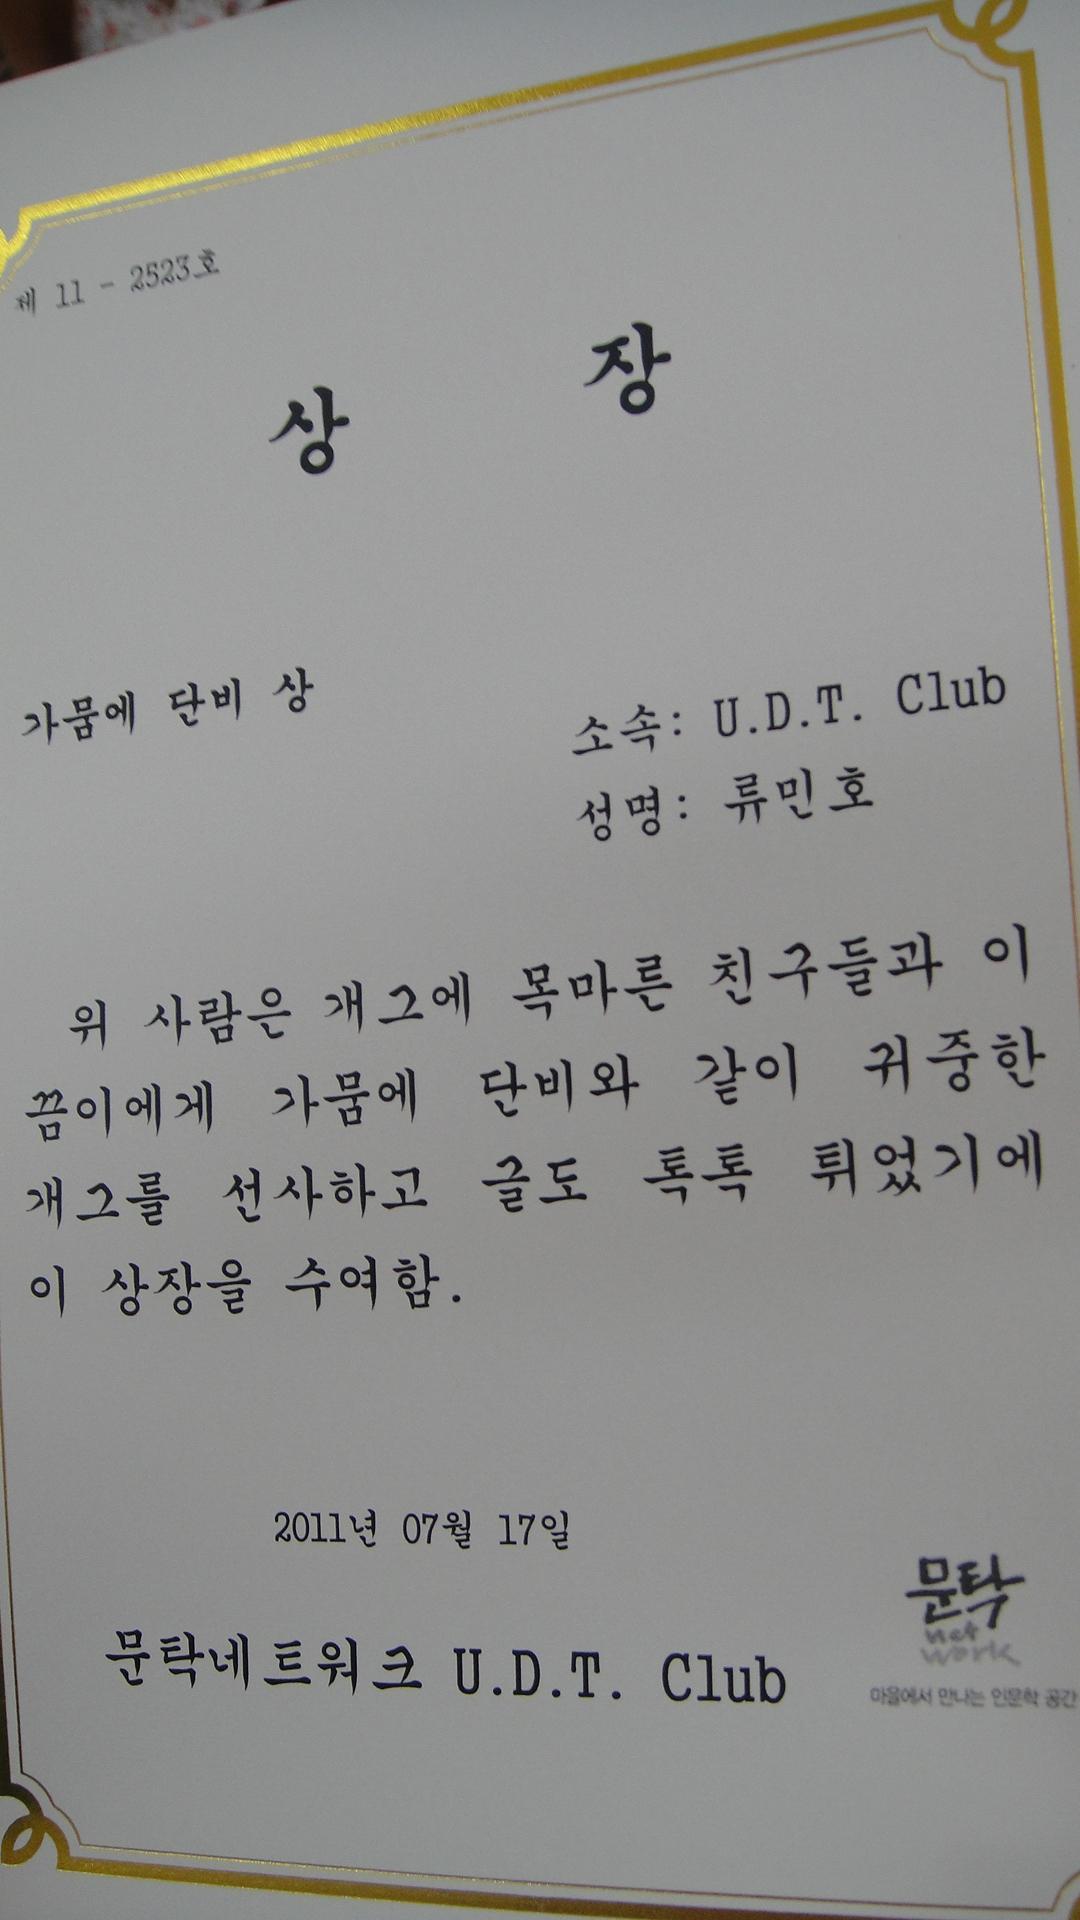 제 11 - 2523호
상 장
가뭄에 단비 상
소속: U.D.T. Club
성명: 류민호
위 사람은 개그에 목마른 친구들과 이
끔이에게 가뭄에 단비와 같이 귀중한
개그를 선사하고 글도 톡톡 튀었기에
이 상장을 수여함.
2011년 07월 17일
문탁네트워크 U.D.T. Club
문탁
net
work
마을에서 만나는 인문학 공간